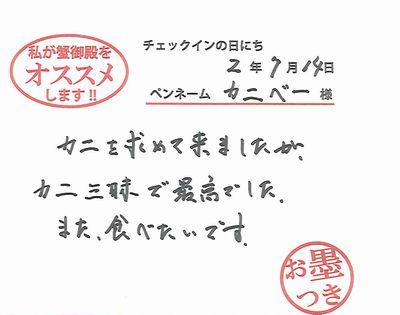 私が蟹御殿を
オススメ
します!!
チェックインの日にち
2年9月14日
ペンネーム カニベー 様
カニを求めて来ましたが、
カニ三昧で最高でした。
また、食べたいです。
お墨
つき